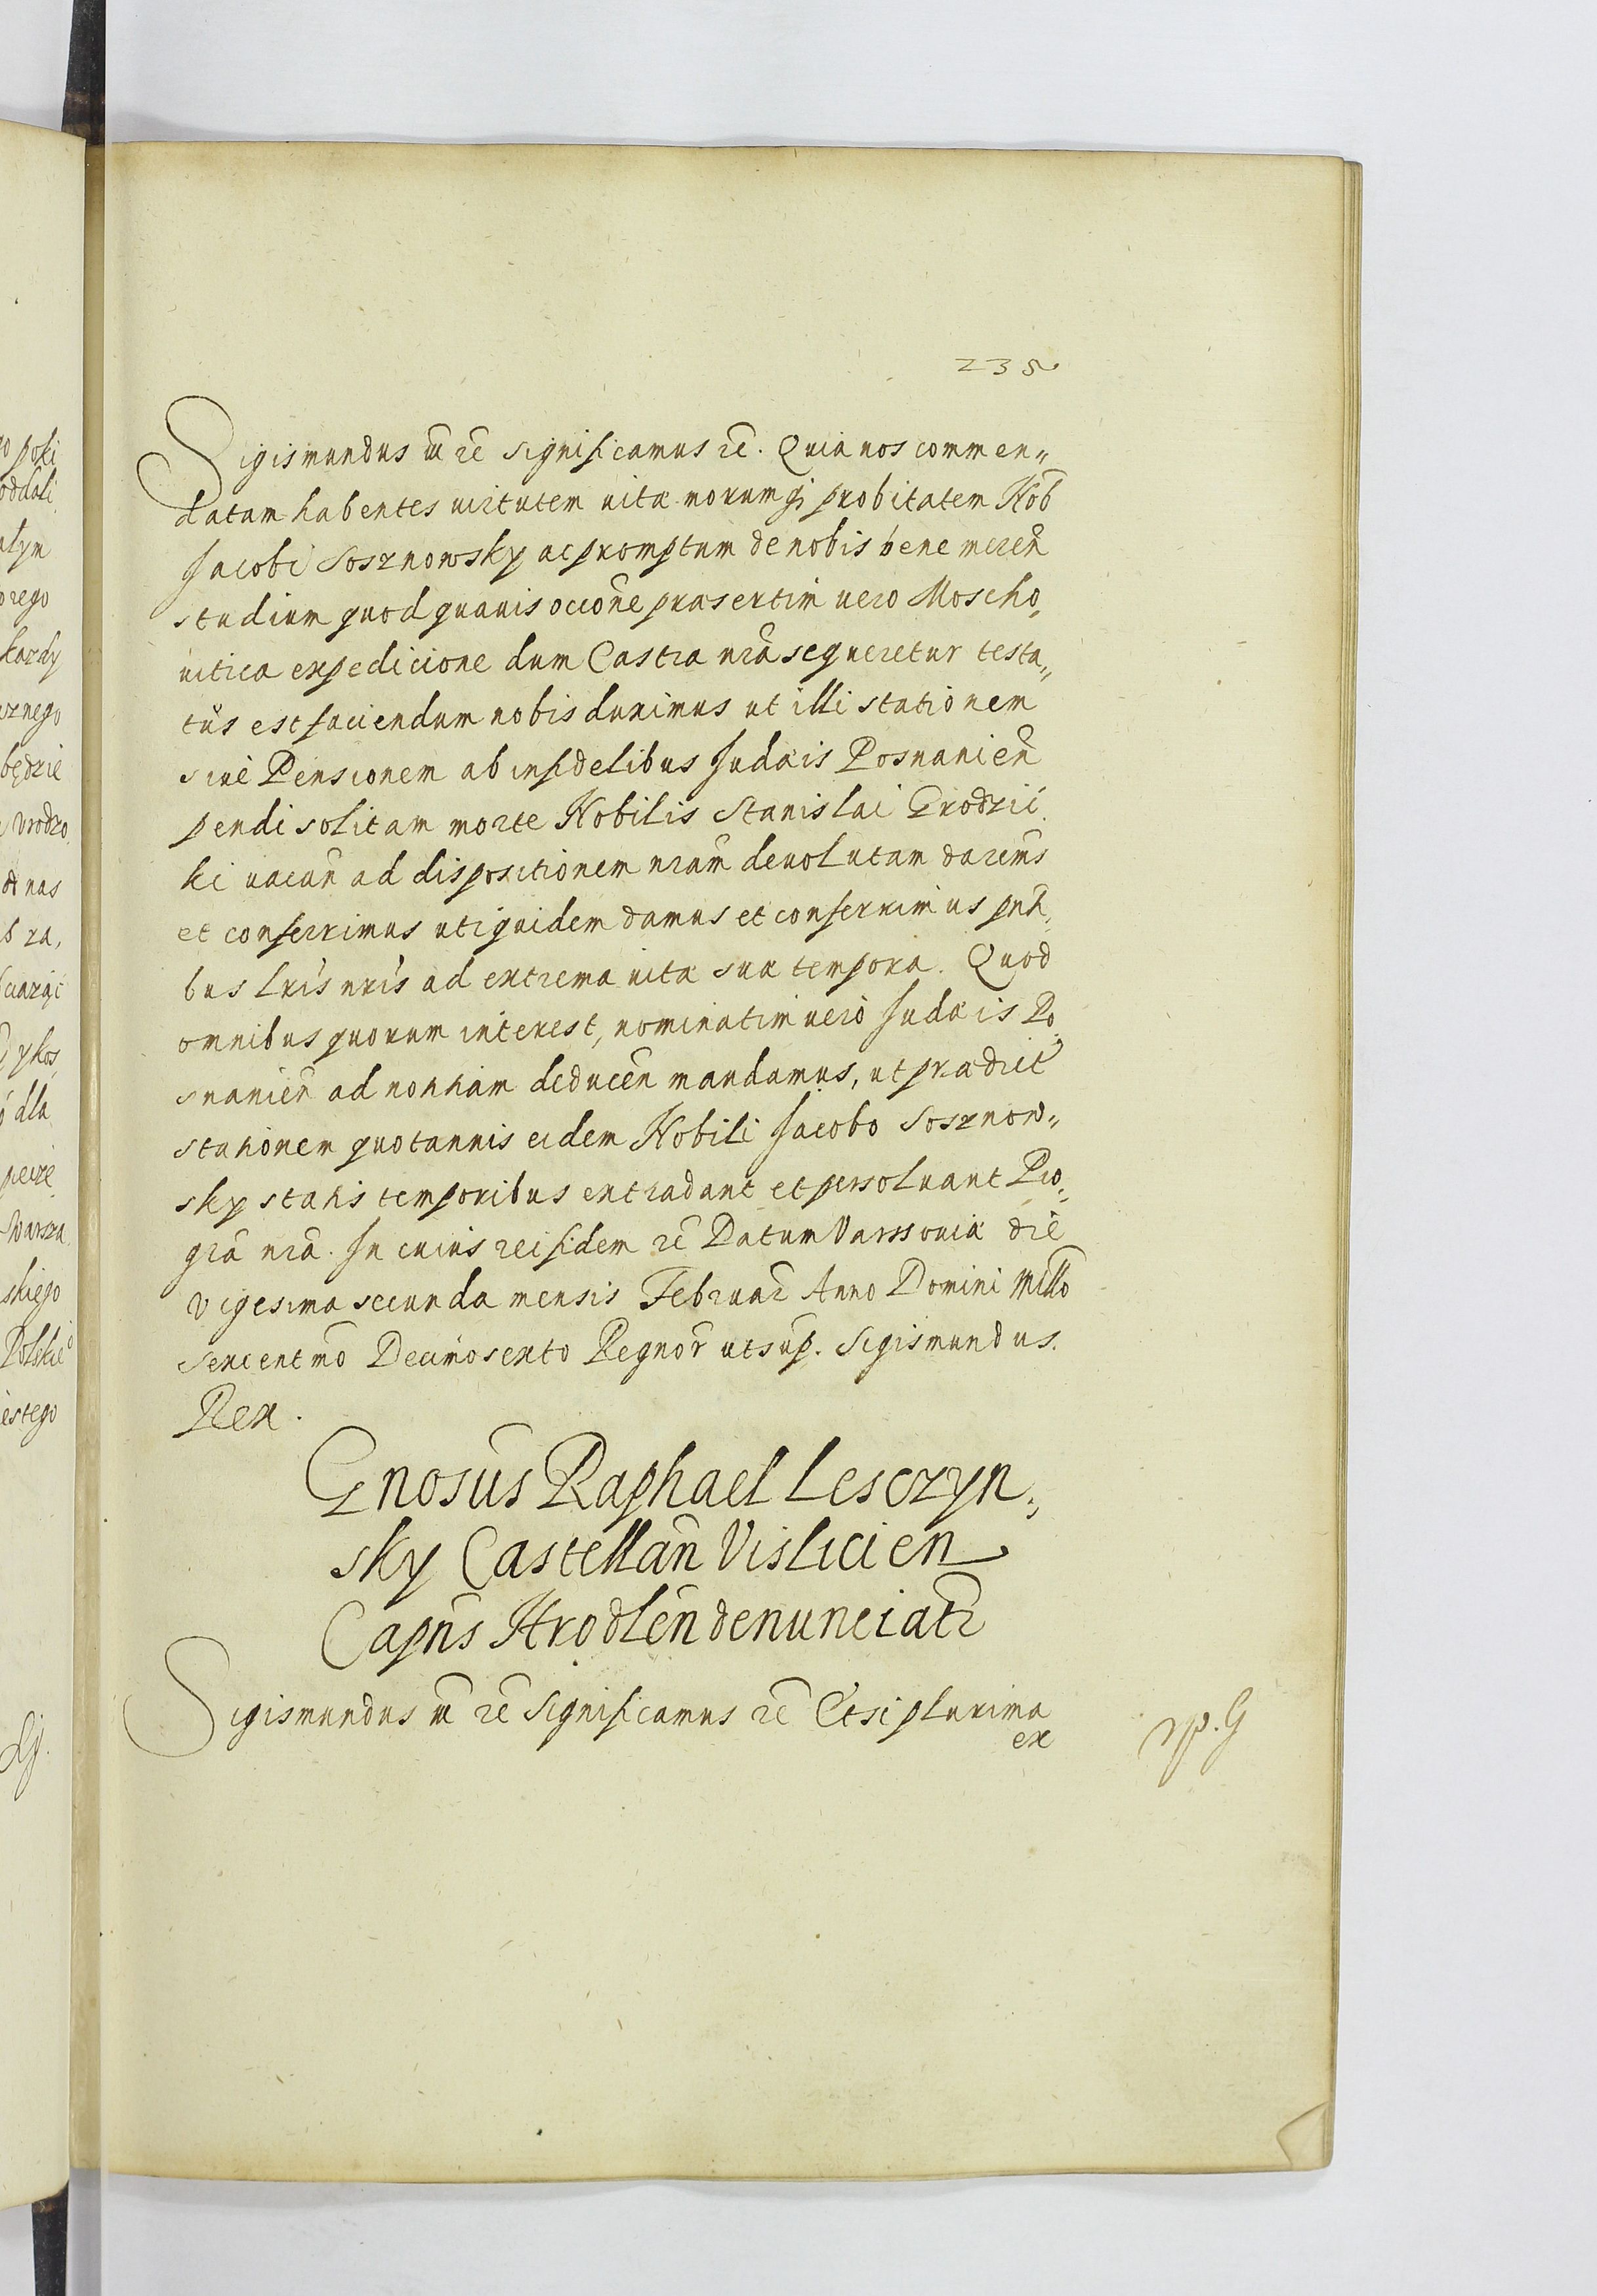 235
Sigismundus iii rc significamus rc. Quia nos commen„
datam habentes virtutem vitæ morumq; probitatem Nob
Jacobi Sosznowsky ac promptum de nobis bene meren̄
studium quod quauis occōne præsertim vero Moscho„
uitica expedicione dum Castra nrā sequeretur testa„
tus est faciendum nobis duximus ut illi stationem
siue Pensionem ab infidelibus Judæis Posnanien̄
pendi solitam morte Nobilis Stanislai Grodzic„
ki vacan̄ ad dispositionem nrām deuolutam daremus
et conferrimus uti quidem damus et conferrimus pn̄ti„
bus Lrīs nrīs ad extrema vitæ suæ tempora. Quod
omnibus quorum interest, nominatim vero Judæis Po„
snanien̄ ad notitiam deducen̄ mandamus, ut prædict
stationem quotannis eidem Nobili Jacobo Sosznow„
sky statis temporibus extradant et persoluant Pro„
grā nrā. In cuius rei fidem rc Datum Varssouiæ die
vigesima secunda mensis Februar Anno Domini Millō
sexcentmō Decimosexto Regnor ut sup. Sigismundus.
Rex.
Gnosus Raphael Lesczyn„
sky Castellan̄ Vislicien
Capn̄s Hrodlen̄ denunciatr
Sigismundus iii rc significamus rc Etsi plurima
ex